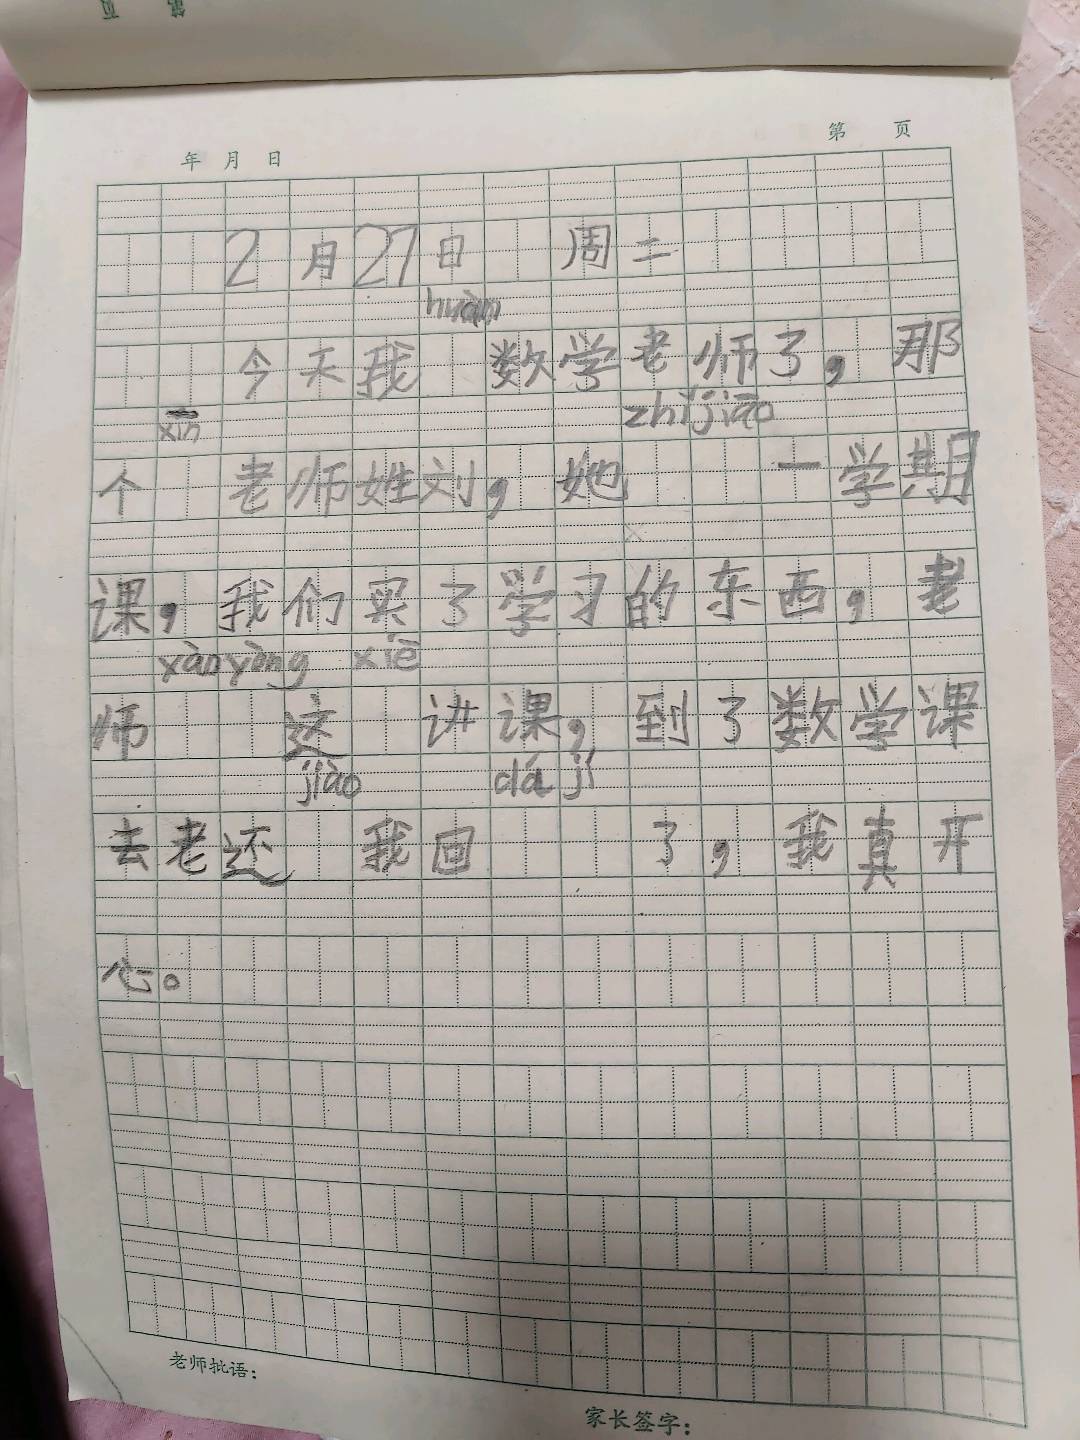 第 页
年 月 日 第 页
2月27日 周二
huàn
今天我 数学老师了，那
xīn zhǐ jiāo
个 老师姓刘，她 一学期
课，我们买了学习的东西，老
xàn yàng xiē
师 这 讲课，到了数学课
jiào dá jí
去老还 我回 了，我真开
心。
老师批语：
家长签字：